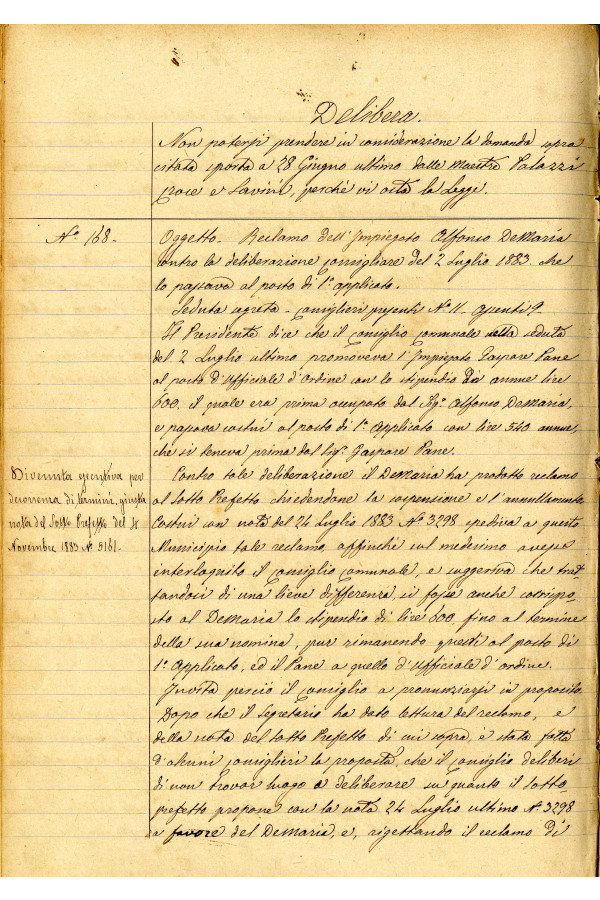 Delibera.
Non potersi prendere in considerazione la domanda sopra
citata sporta a 28 Giugno ultimo dalle Maestre Palazzi
Croce e Lavini, perchè vi osta la legge.
N.º 168.
Oggetto. Reclamo dell'Impiegato Alfonso DeMaria
contro la deliberazione consigliare del 2 Luglio 1883 che
lo passava al posto di 1º applicato.
Seduta segreta - Consiglieri presenti Nº 11. Assenti 9.
Il Presidente dice che il Consiglio Comunale nella seduta
del 2 Luglio ultimo promoveva l'Impiegato Gaspare Pane
al posto d'Ufficiale d'Ordine con lo stipendio di annue lire
600, il quale era prima occupato dal Sigr. Alfonso DeMaria,
e passava costui al posto di 1º Applicato con lire 540 annue,
che si teneva prima dal Sigr. Gaspare Pane.
Contro tale deliberazione il DeMaria ha prodotto reclamo
al Sotto Prefetto chiedendone la sospensione e l'annullamento
Costui con nota del 24 Luglio 1883 Nº 3298 spediva a questo
Municipio tale reclamo, affinchè sul medesimo avesse
interloquito il Consiglio Comunale, e suggeriva che trat-
tandosi di una lieve differenza, si fosse anche corrispo-
sto al DeMaria lo stipendio di lire 600 fino al termine
della sua nomina, pur rimanendo questi al posto di
1º Applicato, ed il Pane a quello d'Ufficiale d'ordine.
Invita perciò il Consiglio a pronunziarsi in proposito
Dopo che il Segretario ha dato lettura del reclamo, e
della nota del Sotto Prefetto di cui sopra, è stata fatta
d'alcuni consiglieri la proposta, che il Consiglio deliberi
di non trovar luogo a deliberare su quanto il Sotto-
prefetto propone con la nota 24 Luglio ultimo Nº 3298
a favore del DeMaria, e, rigettando il reclamo di
Divenuta esecutiva per
decorrenza di termini, giusta
nota del Sotto Prefetto del
Novembre 1883 Nº 5161.